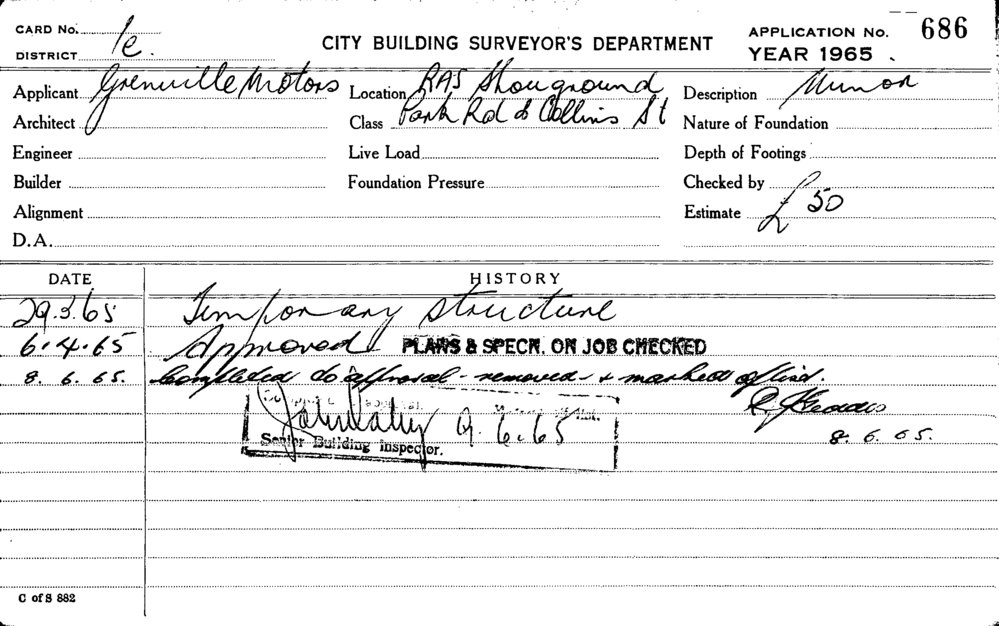 CARD No. 1e 686
CITY BUILDING SURVEYOR'S DEPARTMENT APPLICATION No.
DISTRICT YEAR 1965
Applicant Grenville Motors Location RAS Showground Description
Architect Class Park Rd & Collins St Nature of Foundation
Engineer Live Load Depth of Footings
Builder Foundation Pressure Checked by
Alignment Estimate £50
D.A.
DATE HISTORY
29.3.65 Temporary structure
6.4.65 Approved PLANS & SPECN. ON JOB CHECKED
8.6.65. Completed to approval - removed - & marked off list.
8.6.65.
9.6.65
Senior Building Inspector.
C of S 882